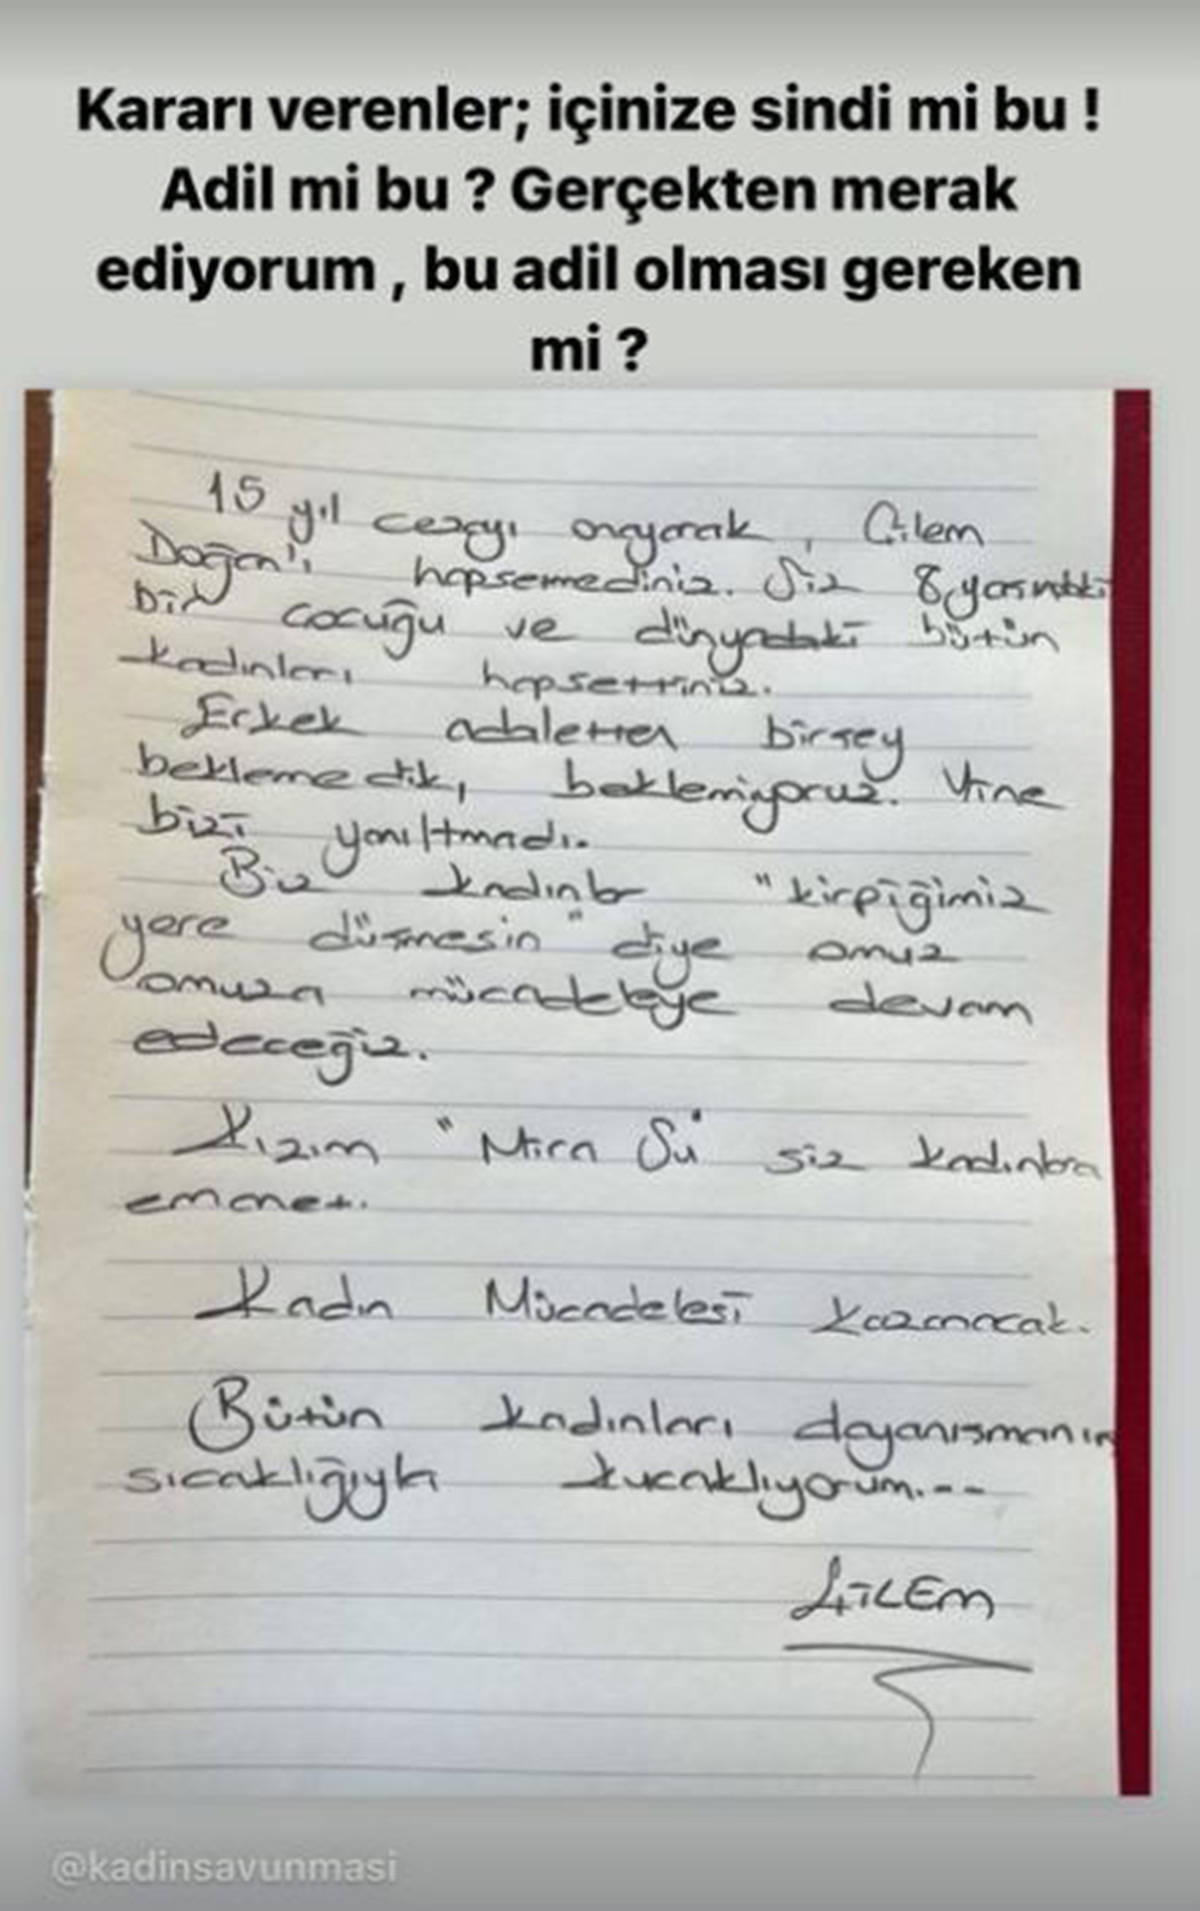 Kararı verenler; içinize sindi mi bu !
Adil mi bu ? Gerçekten merak
ediyorum , bu adil olması gereken
mi ?
15 yıl cezayı onayarak, Çilem
Doğan'ı hapsemediniz. Siz 8 yaşındaki
bir çocuğu ve dünyadaki bütün
kadınları hapsettiniz.
Erkek adaletten birşey
beklemedik, beklemiyoruz. Yine
bizi yanıltmadı.
Biz kadınlar "kirpiğimiz
yere düşmesin" diye omuz
omuza mücadeleye devam
edeceğiz.
Kızım "Mira Su" siz kadınlara
emanet.
Kadın Mücadelesi kazanacak.
Bütün kadınları dayanışmanın
sıcaklığıyla kucaklıyorum...
ÇİLEM
@kadinsavunmasi